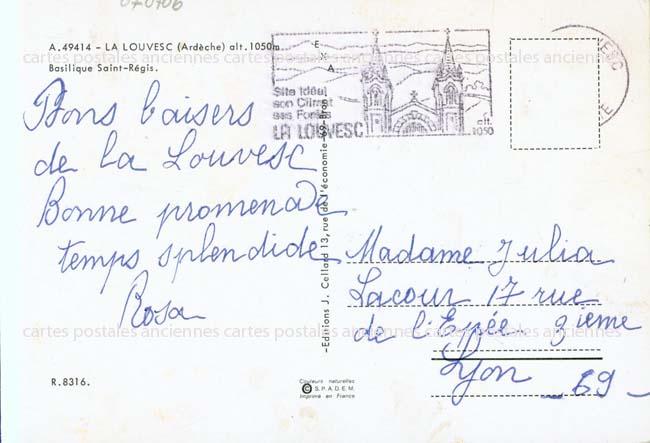 070706
A.49414 - LA LOUVESC (Ardèche) alt.1050m
Basilique Saint-Régis.
Site Idéal
son Climat
ses Forêts
LA LOUVESC
alt.
1050
Bons baisers
de la Louvesc
Bonne promenade
temps splendide
Rosa
-Editions J. Cellard 13,rue de l'économie-69-Bron
Madame Julia
Lacour 17 rue
de l'Epée 3ieme
Lyon -69-
cartes postales anciennes cartes postales anciennes cartes postales anciennes
cartes postales anciennes cartes postales anciennes cartes postales anciennes
R.8316.
Couleurs naturelles
© S.P.A.D.E.M.
Imprimé en France